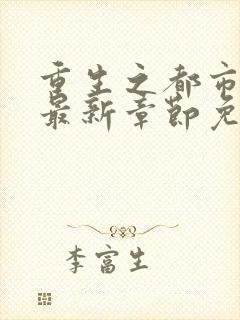 重生之都市
最新章节免
李富生